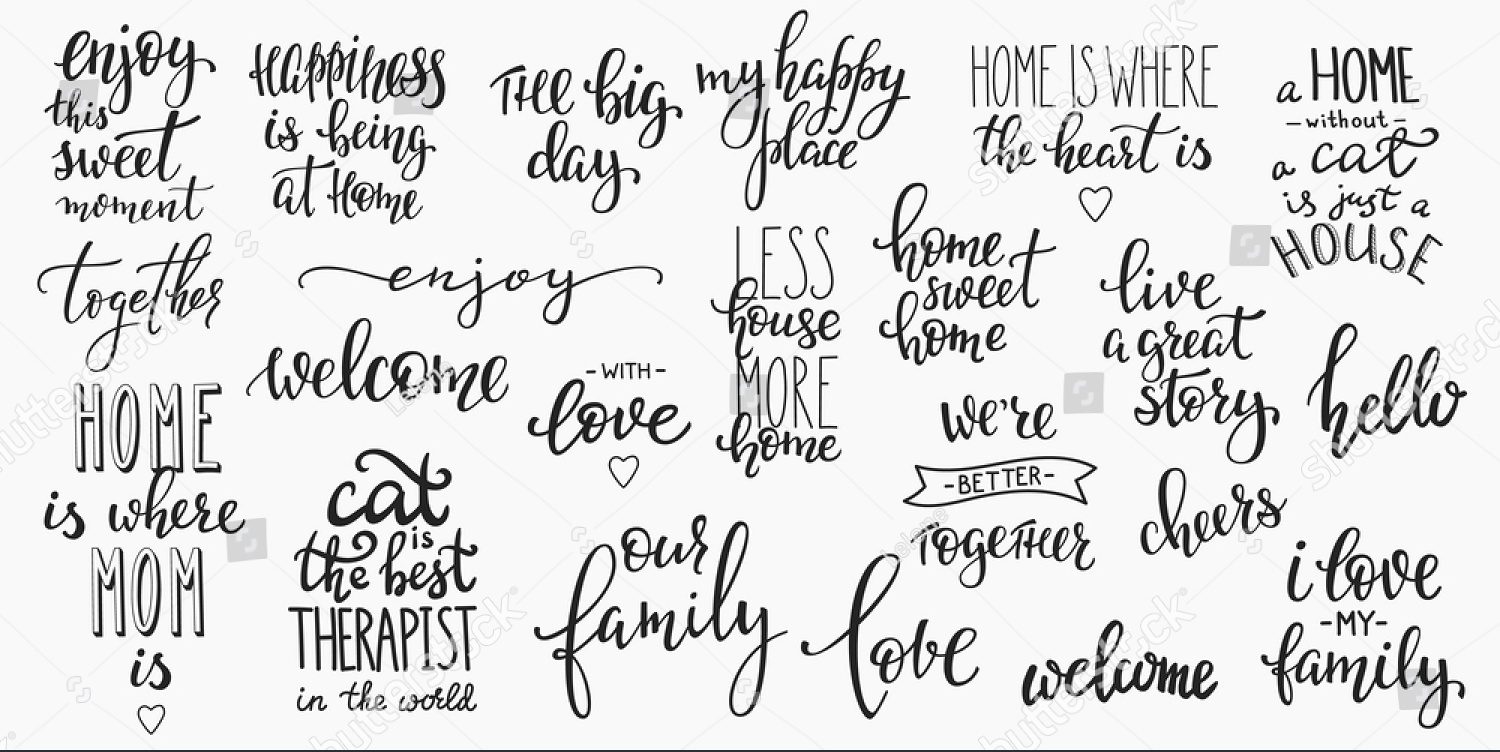 enjoy
this
sweet
moment
Happiness
is being
at Home
THE big
day
my happy
place
HOME IS WHERE
the heart is
a HOME
- without -
a cat
is just a
HOUSE
together
enjoy
welcome
- WITH -
love
LESS
house
MORE
home
home
sweet
home
live
a great
story
hello
HOME
is where
MOM
is
cat
is
the best
THERAPIST
in the world
our
family
love
we're
- BETTER -
TOGETHER
cheers
welcome
i love
- MY -
family
shutterstock